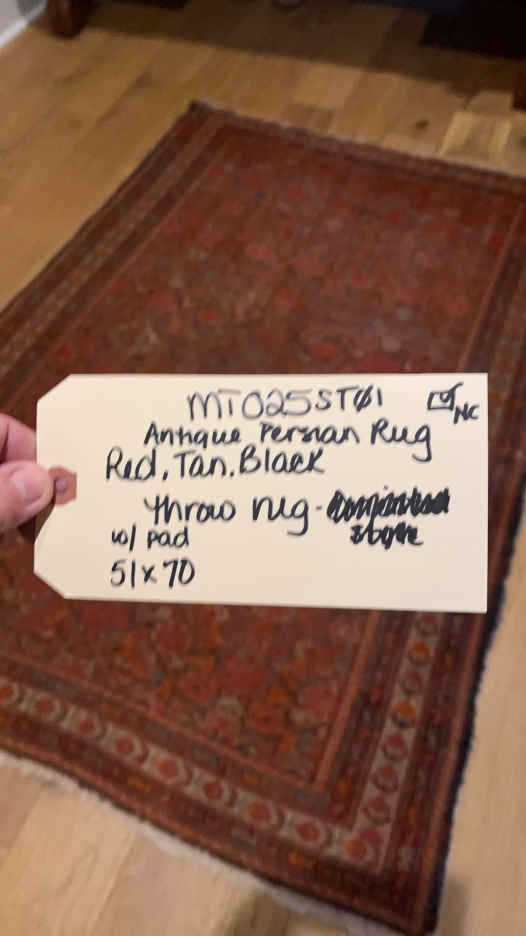 MT025ST01
NC
Antique Persian Rug
Red, Tan, Black
Throw rug -
w/ pad
51x70